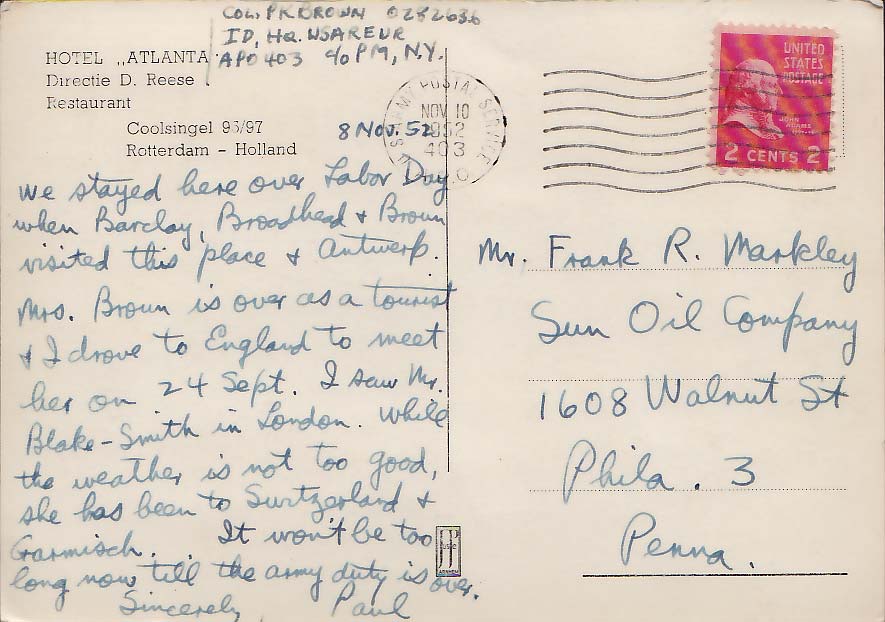 COL. P.R. BROWN 0282636
ID, HQ. USAREUR
APO 403 c/o PM, N.Y.
HOTEL „ATLANTA"
Directie D. Reese
Restaurant
Coolsingel 95/97
Rotterdam - Holland
8 NOV. 52
We stayed here over Labor Day
when Barclay, Broadhead & Brown
visited this place & Antwerp.
Mrs. Brown is over as a tourist
& I drove to England to meet
her on 24 Sept. I saw Mr.
Blake-Smith in London. While
the weather is not too good,
she has been to Switzerland &
Garmisch. It won't be too
long now till the army duty is over.
Sincerely Paul
ARMY POSTAL SERVICE
NOV 10
1952
403
UNITED
STATES
POSTAGE
JOHN
ADAMS
2 CENTS 2
Mr. Frank R. Markley
Sun Oil Company
1608 Walnut St
Phila. 3
Penna.